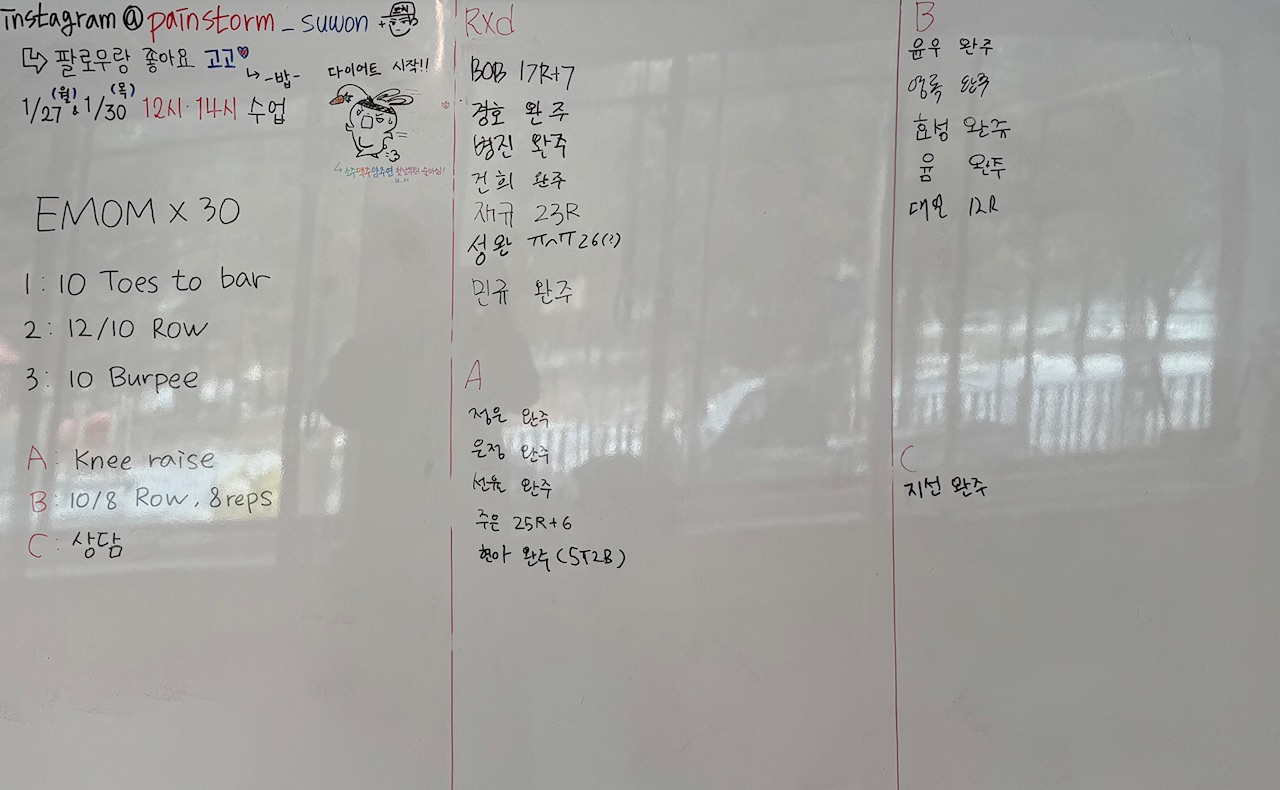 instagram@painstorm_suwon +
↳ 팔로우랑 좋아요 고고♥
↳ -밥-
1/27(월) & 1/30(목) 12시·14시 수업
다이어트 시작!!
EMOM x 30
1: 10 Toes to bar
2: 12/10 Row
3: 10 Burpee
A: Knee raise
B: 10/8 Row, 8reps
C: 상담
Rxd
BOB 17R+7
경호 완주
병진 완주
건희 완주
재규 23R
성완 ㅠㅅㅠ 26(?)
민규 완주
A
정은 완주
은정 완주
선율 완주
주은 25R+6
현아 완주 (5T2B)
B
윤우 완주
영록 완주
효성 완주
윰 완주
대운 12R
C
지선 완주